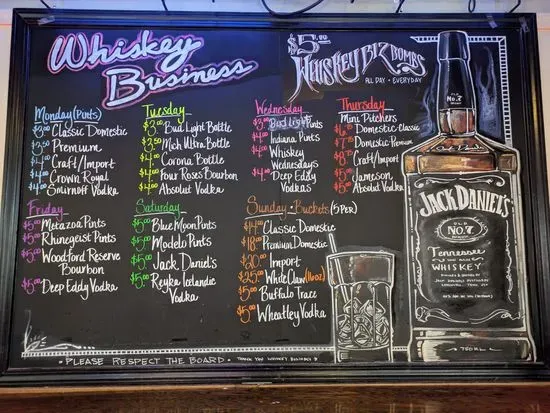 Whiskey
Business
$5.00
WHISKEYBIZ BOMBS
ALL DAY · EVERYDAY
Monday (Pints)
$3.00 Classic Domestic
$3.50 Premium
$4.00 Craft/Import
$4.00 Crown Royal
$4.00 Smirnoff Vodka
Tuesday
$3.00 Bud Light Bottle
$3.50 Mich Ultra Bottle
$4.00 Corona Bottle
$4.00 Four Roses Bourbon
$4.00 Absolut Vodka
Wednesday
$3.00 Bud Light Pints
$4.00 Indiana Pints
$4.00 Whiskey
Wednesdays
$4.00 Deep Eddy
Vodkas
Thursday
Mini Pitchers
Domestic Classic
Domestic Premium
Craft/Import
$5.00 Jameson
$5.00 Absolut Vodka
Friday
$5.00 Metazoa Pints
$5.00 Rhinegeist Pints
$5.00 Woodford Reserve
Bourbon
$5.00 Deep Eddy Vodka
Saturday
$5.00 Blue Moon Pints
$5.00 Modelo Pints
$5.00 Jack Daniel's
$5.00 Reyka Icelandic
Vodka
Sunday - Buckets (5 PER)
$14.00 Classic Domestic
$18.00 Premium Domestic
$20.00 Import
$25.00 White Claw (16oz)
$5.00 Buffalo Trace
$5.00 Wheatley Vodka
OLD
No.7
JACK DANIEL'S
OLD
NO.7
Tennessee
WHISKEY
750ML
· PLEASE RESPECT THE BOARD · THANK YOU WHISKEY BUSINESS